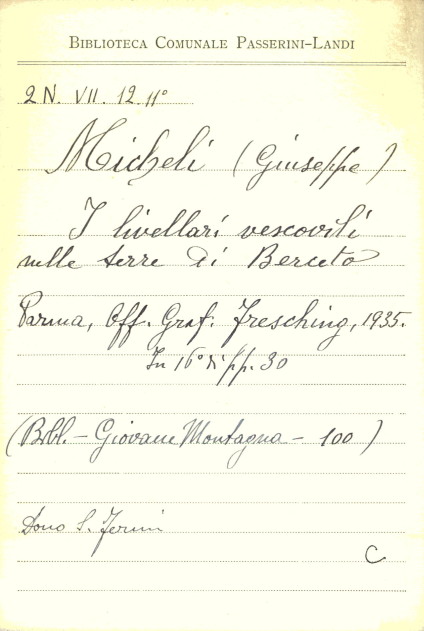 BIBLIOTECA COMUNALE PASSERINI-LANDI
2 N. VII. 12. 11°
Micheli (Giuseppe)
I livellari vescovili
nelle terre di Berceto
Parma, Off. Graf. Fresching, 1935.
In 16° di pp. 30
(Bibl. - Giovane Montagna - 100)
Dono S. Fermi
C